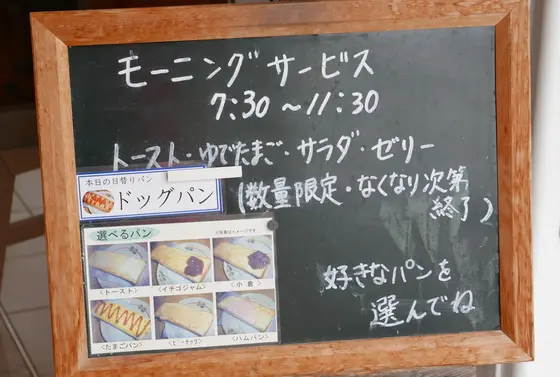 モーニングサービス
7:30〜11:30
トースト・ゆでたまご・サラダ・ゼリー
本日の日替りパン
ドッグパン
(数量限定・なくなり次第
終了)
選べるパン
<トースト>
<イチゴジャム>
<小倉>
<たまごパン>
<ピーナッツ>
<ハムパン>
好きなパンを
選んでね